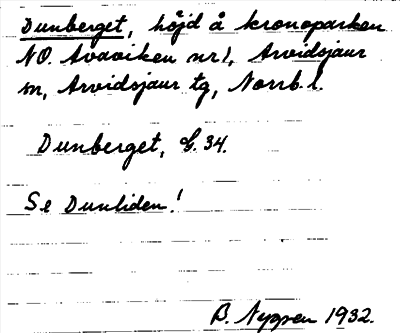 Dunberget, höjd å kronoparken
NO. Avaviken nr 1, Arvidsjaur
sn, Arvidsjaur tg, Norrb. l.
Dunberget, G. 34.
Se Dunliden!
B. Nygren 1932.